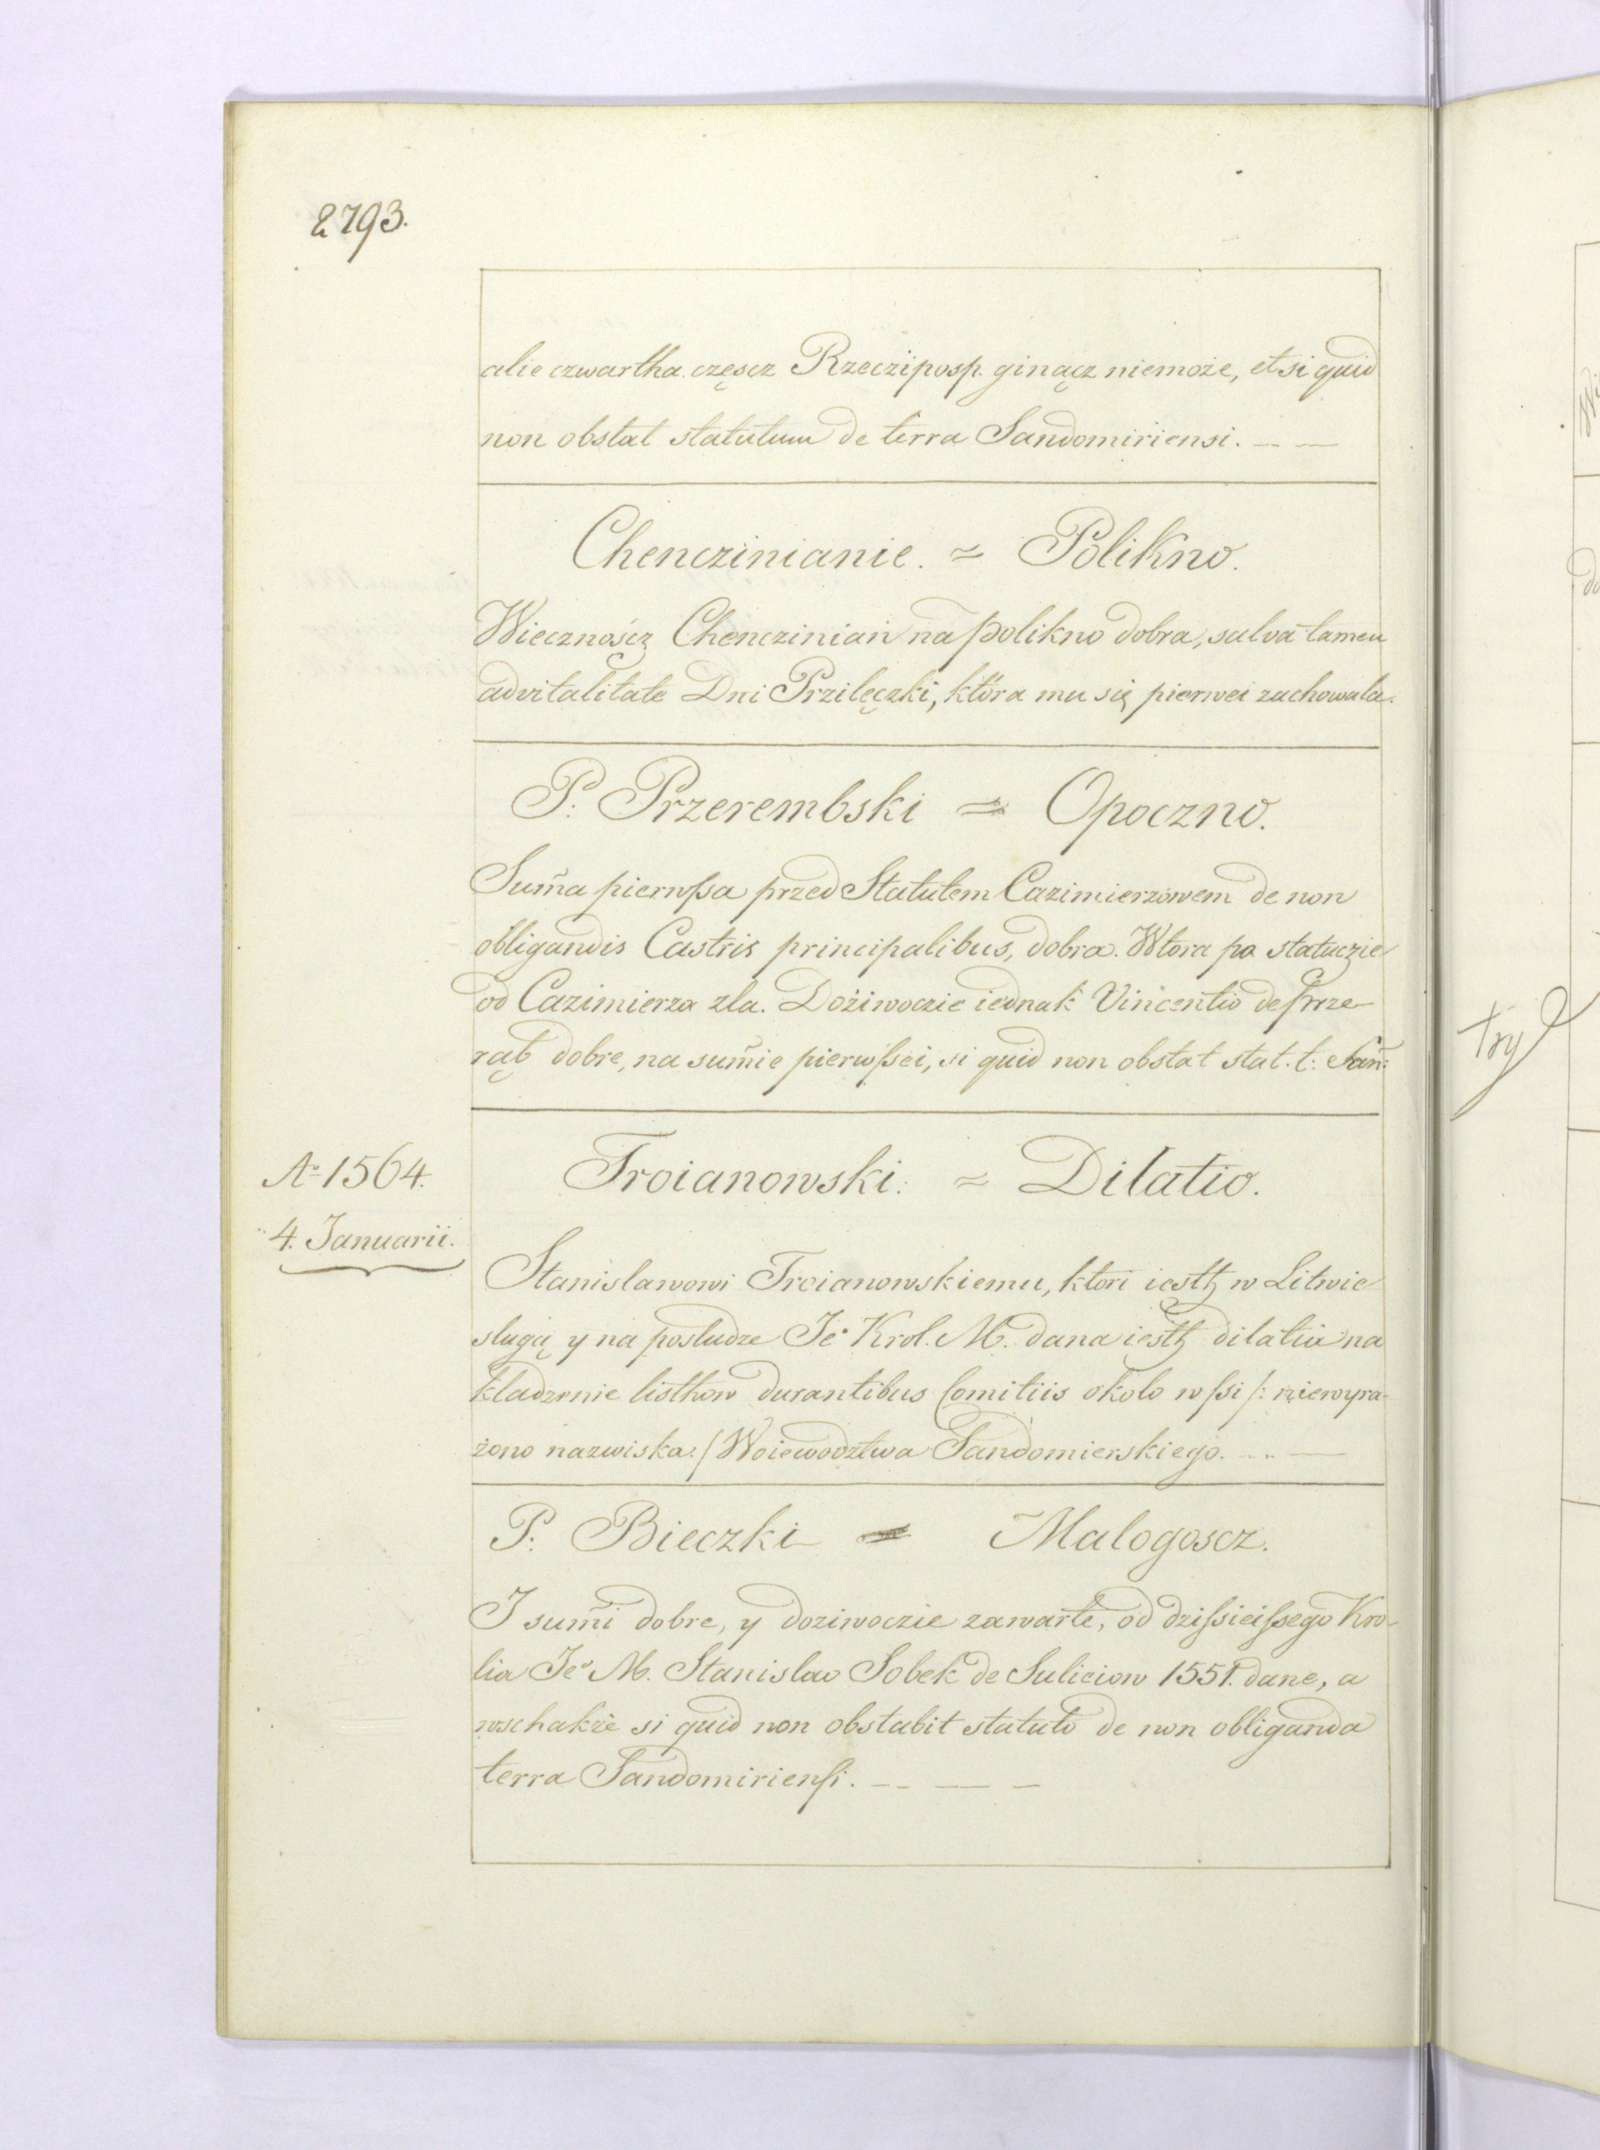 2793.
alie czwartha częscz Rzecziposp. ginącz niemoże, et si quid
non obstat statutum de terra Sandomiriensi. — —
Chenczinianie. = Polikno.
Wiecznoścz Chenczinian na polikno dobra, salva tamen
advitalitate Dni Przilęczki, która mu się pierwei zachowala.
P: Przerembski = Opoczno.
Sum̃a pierwſsa przed Statutem Cazimierzowem de non
obligandis Castris principalibus, dobra. Wtora po statuczie
od Cazimierza zla. Dożiwoczie iednak Vincentio de Prze-
rąb dobre, na sum̃ie pierwſsei, si quid non obstat stat. t: San:
Ao 1564.
4. Januarii.
Troianowski: = Dilatio.
Stanislawowi Troianowskiemu, ktori iesth w Litwie
slugą y na posludze Jeo Krol. M. dana iesth dilatia na
kladzenie listhow durantibus Comitiis okolo wſsi /: niewyra-
żono nazwiska :/ Woiewodztwa Sandomierskiego. — —
P: Bieczki = Malogoscz.
I sum̃i dobre, y doziwoczie zawarte, od dziſsieiſsego Kro-
lia Jeo M. Stanislao Sobek de Suliciow 1551. dane, a
wschakże si quid non obstabit statuto de non obliganda
terra Sandomirienſi. — — —
try